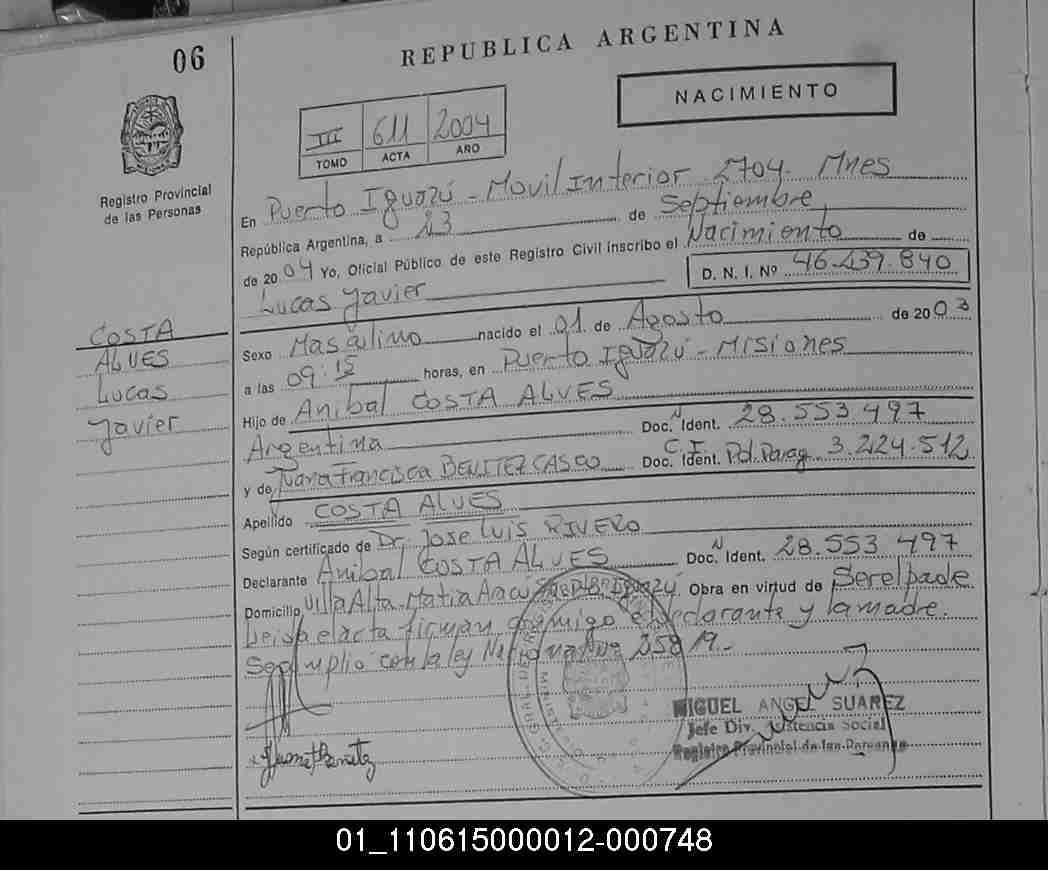 06
REPUBLICA ARGENTINA
NACIMIENTO
III 611 2004
TOMO ACTA AÑO
Registro Provincial
de las Personas
En Puerto Iguazú - Movil Interior 2704. Mnes
República Argentina, a 23 de Septiembre
de 2004 Yo, Oficial Público de este Registro Civil inscribo el Nacimiento de
Lucas Javier D. N. I. Nº 46.239.840
COSTA
ALVES
Lucas
Javier
Sexo Masculino nacido el 01 de Agosto de 2003
a las 09:15 horas, en Puerto Iguazú - Misiones
Hijo de Anibal COSTA ALVES
Argentina Doc. N Ident. 28.553 497
y de Juana Francisca BENITEZ CASCO Doc. C.I. Ident. Pol. Parag 3.224.512
Apellido COSTA ALVES
Según certificado de Dr. Jose Luis RIVERO
Declarante Anibal COSTA ALVES Doc. N Ident. 28.553 497
Domicilio Villa Alta Obra en virtud de Ser el padre
Leida el acta firman conmigo el declarante y la madre.
Se cumplio con la ley Nacional Nro 25819.-
MIGUEL ANGEL SUAREZ
Jefe Div. Asistencia Social
Registro Provincial de las Personas
01_110615000012-000748